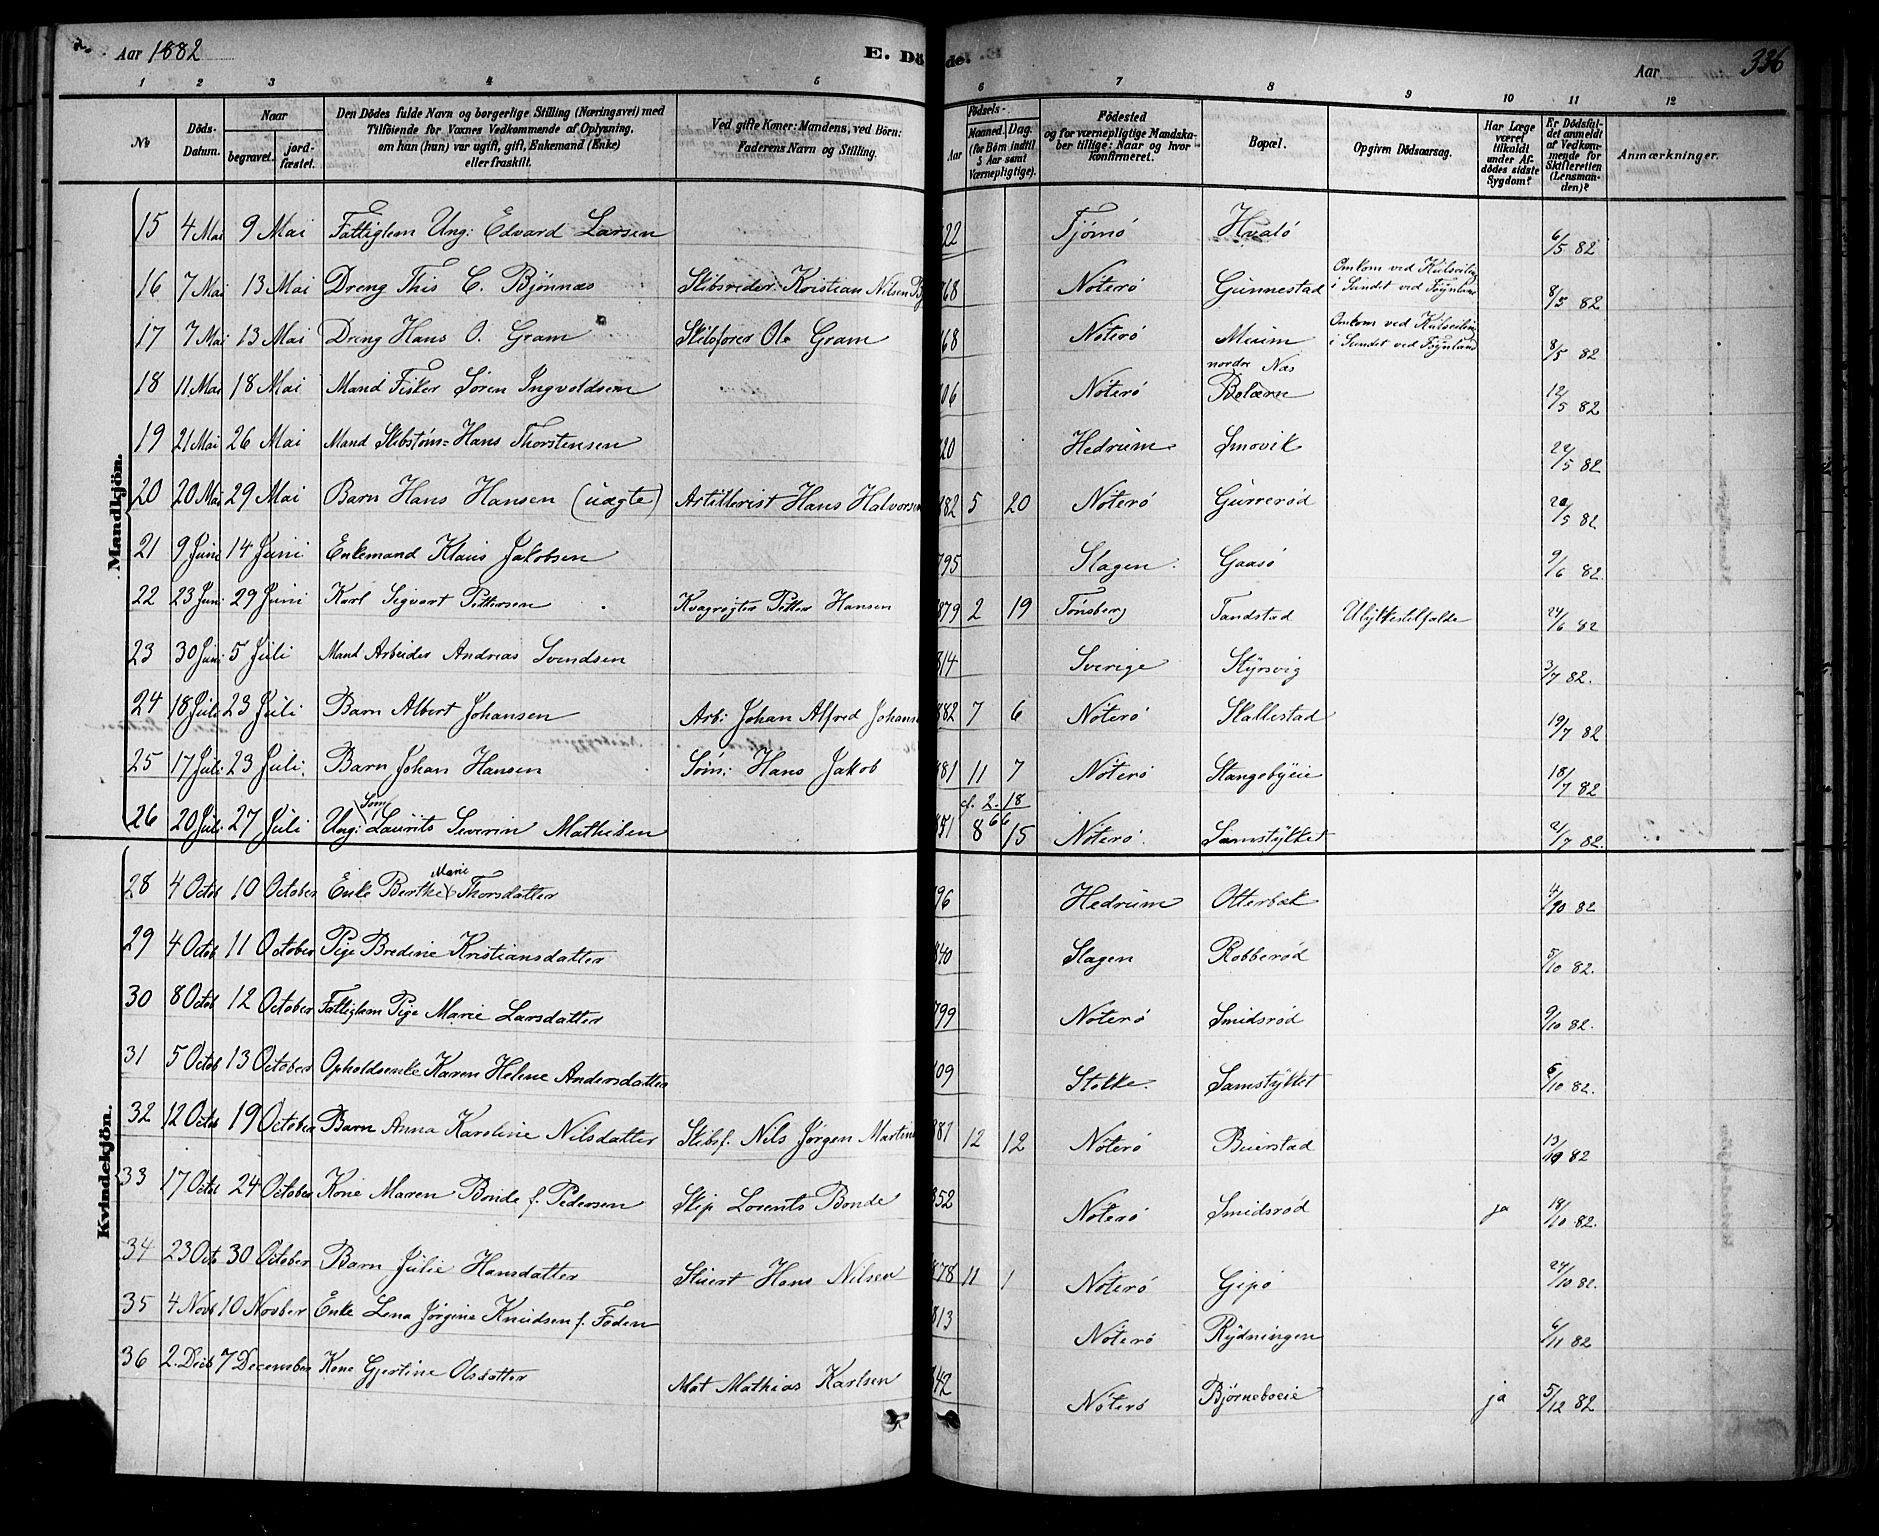 Aar 1882
E. Dö
de.
Aar
336
1 2 3 4 5 6 7 8 9 10 11 12
№
Döds-Datum.
Naar
begravet.
jord-fæstet.
Den Dödes fulde Navn og borgerlige Stilling (Næringsvei) med
Tilföiende for Voxnes Vedkommende af Oplysning,
om hun (han) var ugift, gift, Enkemand (Enke)
eller fraskilt.
Ved gifte Koner: Mandens, ved Börn:
Faderens Navn og Stilling.
Födsels-
Aar
Maaned. Dag.
(for Börn indtil
5 Aar samt
Værnepligtige).
Födested
og for værnepligtige Mandska-
ber tillige: Naar og hvor
konfirmeret.
Bopæl.
Opgiven Dödsaarsag.
Har Læge
været
tilkaldt
under Af-
dödes sidste
Sygdom?
Er Dödsfal-
det anmeldt
af Vedkom-
mende for
Skifteretten
(Lensman-
den)?
Anmærkninger.
Mandkjön.
15 4 Mai 9 Mai Fattiglem Ung: Edvard Larsen 22 Tjømø Hvalø 6/5 82
16 7 Mai 13 Mai Dreng This C. Bjönnæs Skibsreder Kristian Nilsen 68 Nöterö Gunnestad Omkom ved Kulseiling i Sundet ved Föynland 8/5 82
17 7 Mai 13 Mai Dreng Hans O. Gram Skibsfører Ole Gram 68 Nöterö Meum Omkom ved Kulseiling i Sundet ved Föynland 8/5 82
18 11 Mai 18 Mai Mand Fisker Søren Ingvoldsen 06 Nöterö nordre Nes Bolærne 12/5 82
19 21 Mai 26 Mai Mand Skibstøm= Hans Thorstensen 20 Hedrum Smovik 22/5 82
20 20 Mai 29 Mai Barn Hans Hansen (uægte) Artillerist Hans Halvorsen 82 5 20 Nöterö Gurrerød 20/5 82
21 9 Juni 14 Juni Enkemand Klaus Jakobsen 795 Slagen Gaasø 9/6 82
22 23 Juni 29 Juni Karl Sigvart Pettersen Kvægrøgter Petter Hansen 879 2 19 Tönsberg Tandstad Ulykkestilfælde 24/6 82
23 30 Juni 5 Juli Mand Arbeider Andreas Svendsen 814 Sverige Styrsvig 3/7 82.
24 18 Juli 23 Juli Barn Albert Johansen Arb: Johan Alfred Johans 882 7 6 Nöterö Skallestad 19/7 82
25 17 Juli 23 Juli. Barn Johan Hansen Søm: Hans Jakob 881 11 7 Nöterö Stangebyeie 18/7 82
26 20 Juli 27 Juli Ung: Søm Laurits Severin Mathisen 8 15 Nöterö. Samstykket 2/7 82.
Kvindekjön.
28 4 Octob 10 October Enke Berthe Marie Thorsdatter 96 Hedrum Otterbæk 4/10 82
29 4 Octob 11 October Pige Bredine Kristiansdatter 840 Slagen Robberød 5/10 82.
30 8 Octob 12 October Fattiglem Pige Marie Larsdatter 799 Nöterö Smidsrød 9/10 82.
31 5 Octob 13 October Opholdsenke Karen Helene Andersdatter 09 Stokke. Samstykket 6/10 82.
32 12 Octob 19 October Barn Anna Karoline Nilsdatter Skibsf. Nils Jörgen Martin 881 12 12 Nöterö Buerstad 13/10 82
33 17 Octob 24 October Kone Maren Bonde f. Pedersen Skip Lorents Bonde 852 Nöterö Smidsrød ja 18/10 82.
34 23 Octo 30 October Barn Julie Hansdatter Stuert Hans Nilsen 878 11 1 Nöterö Gipø 24/10 82.
35 4 Novb 10 Novber Enke Lena Jørgine Knudsen f. Foden 813 Nöterö Rydningen 6/11 82
36 2. Decb 7 December Kone Gjertine Olsdatter Mat Mathias Karlsen 42 Nöterö Bjørneboeie ja 5/12 82